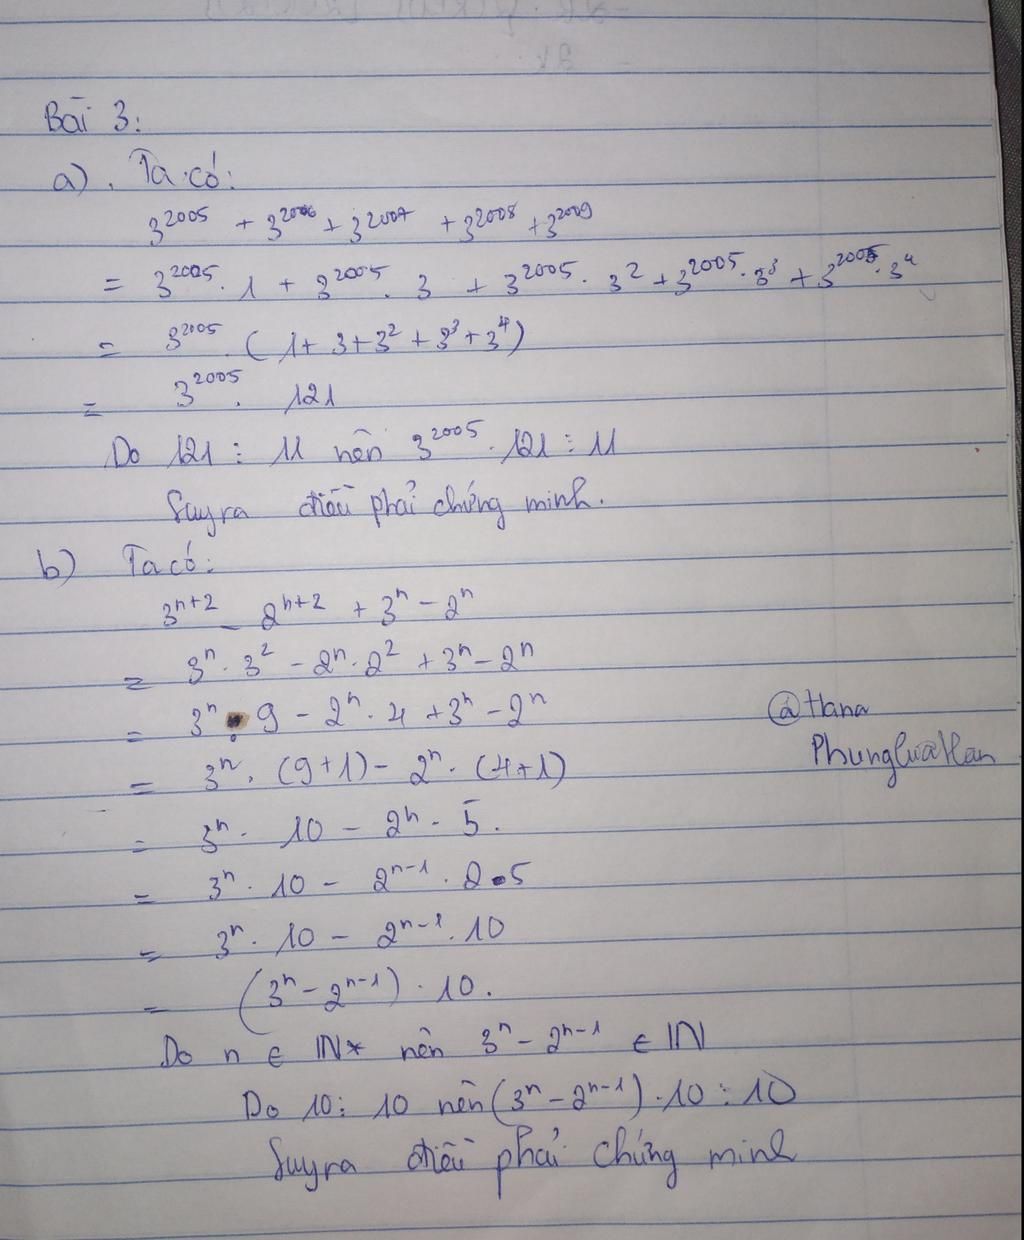 Bài 3:
a). Ta có:
3^2005 + 3^2006 + 3^2007 + 3^2008 + 3^2009
= 3^2005 . 1 + 3^2005 . 3 + 3^2005 . 3^2 + 3^2005 . 3^3 + 3^2005 . 3^4
= 3^2005 . (1 + 3 + 3^2 + 3^3 + 3^4)
= 3^2005 . 121
Do 121 ⋮ 11 nên 3^2005 . 121 ⋮ 11
Suy ra điều phải chứng minh.
b) Ta có:
3^(n+2) - 2^(n+2) + 3^n - 2^n
= 3^n . 3^2 - 2^n . 2^2 + 3^n - 2^n
= 3^n . 9 - 2^n . 4 + 3^n - 2^n
@Hana
= 3^n . (9+1) - 2^n . (4+1)
PhungluaHan
= 3^n . 10 - 2^n . 5.
= 3^n . 10 - 2^(n-1) . 2 . 5
= 3^n . 10 - 2^(n-1) . 10
= (3^n - 2^(n-1)) . 10.
Do n ∈ ℕ* nên 3^n - 2^(n-1) ∈ ℕ
Do 10 ⋮ 10 nên (3^n - 2^(n-1)) . 10 ⋮ 10
Suy ra điều phải chứng minh